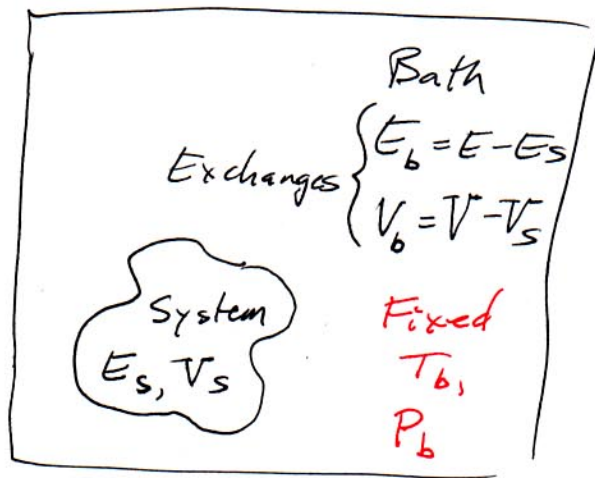 Bath
Exchanges { E_b = E - E_s
V_b = V - V_s
System
E_s, V_s
Fixed
T_b,
P_b